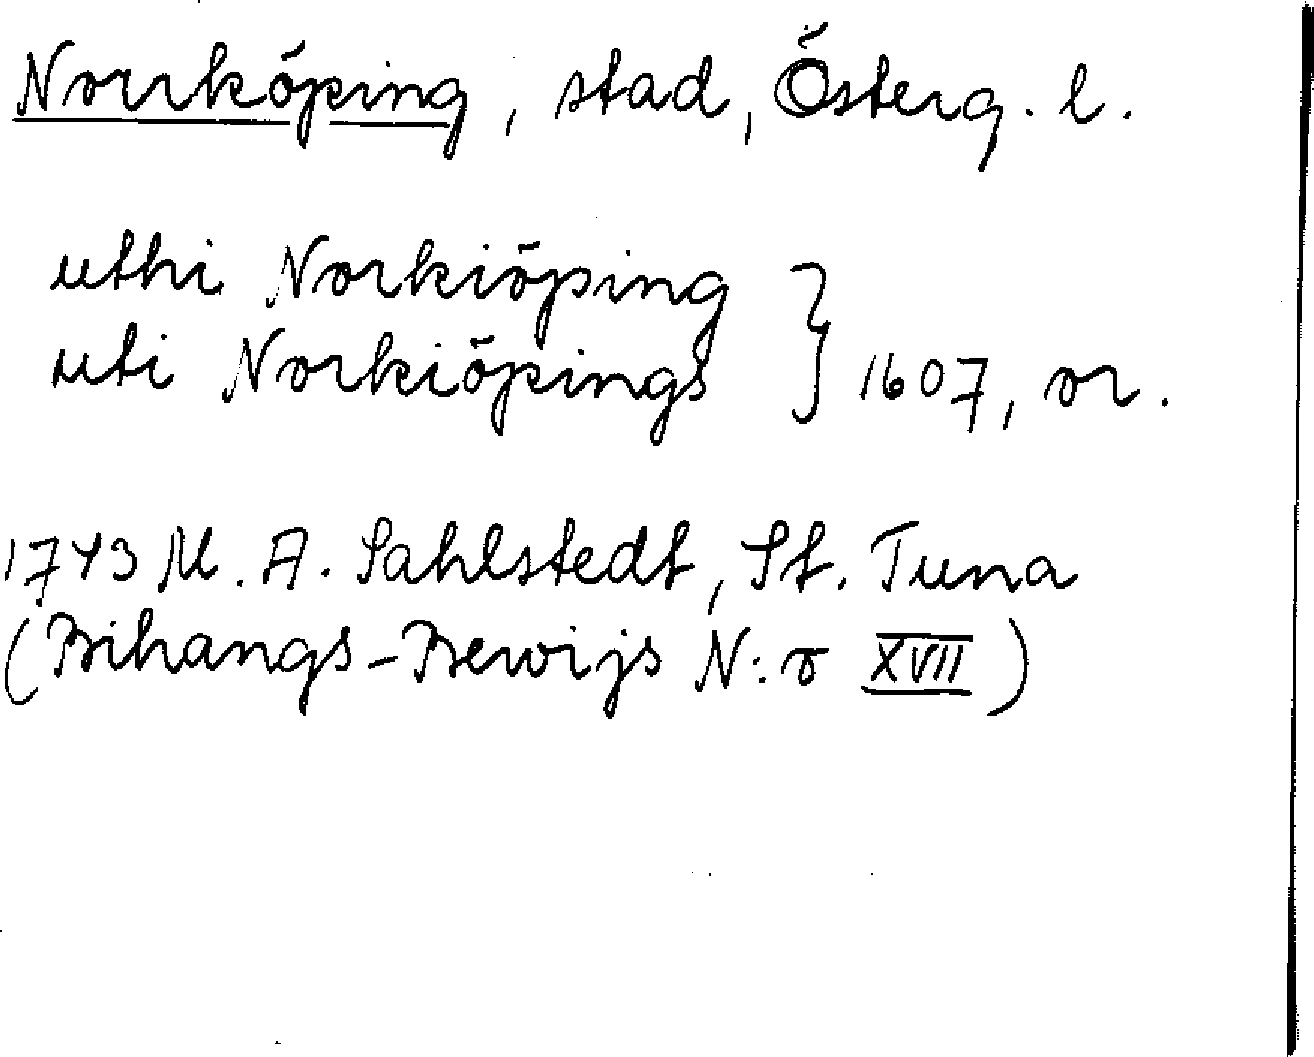 Norrköping, stad, Österg. l.
uthi Norkiöping
uti Norkiöpings } 1607, or.
1743 M. A. Sahlstedt, St. Tuna
(Bihangs-Bewijs N:o XVII)